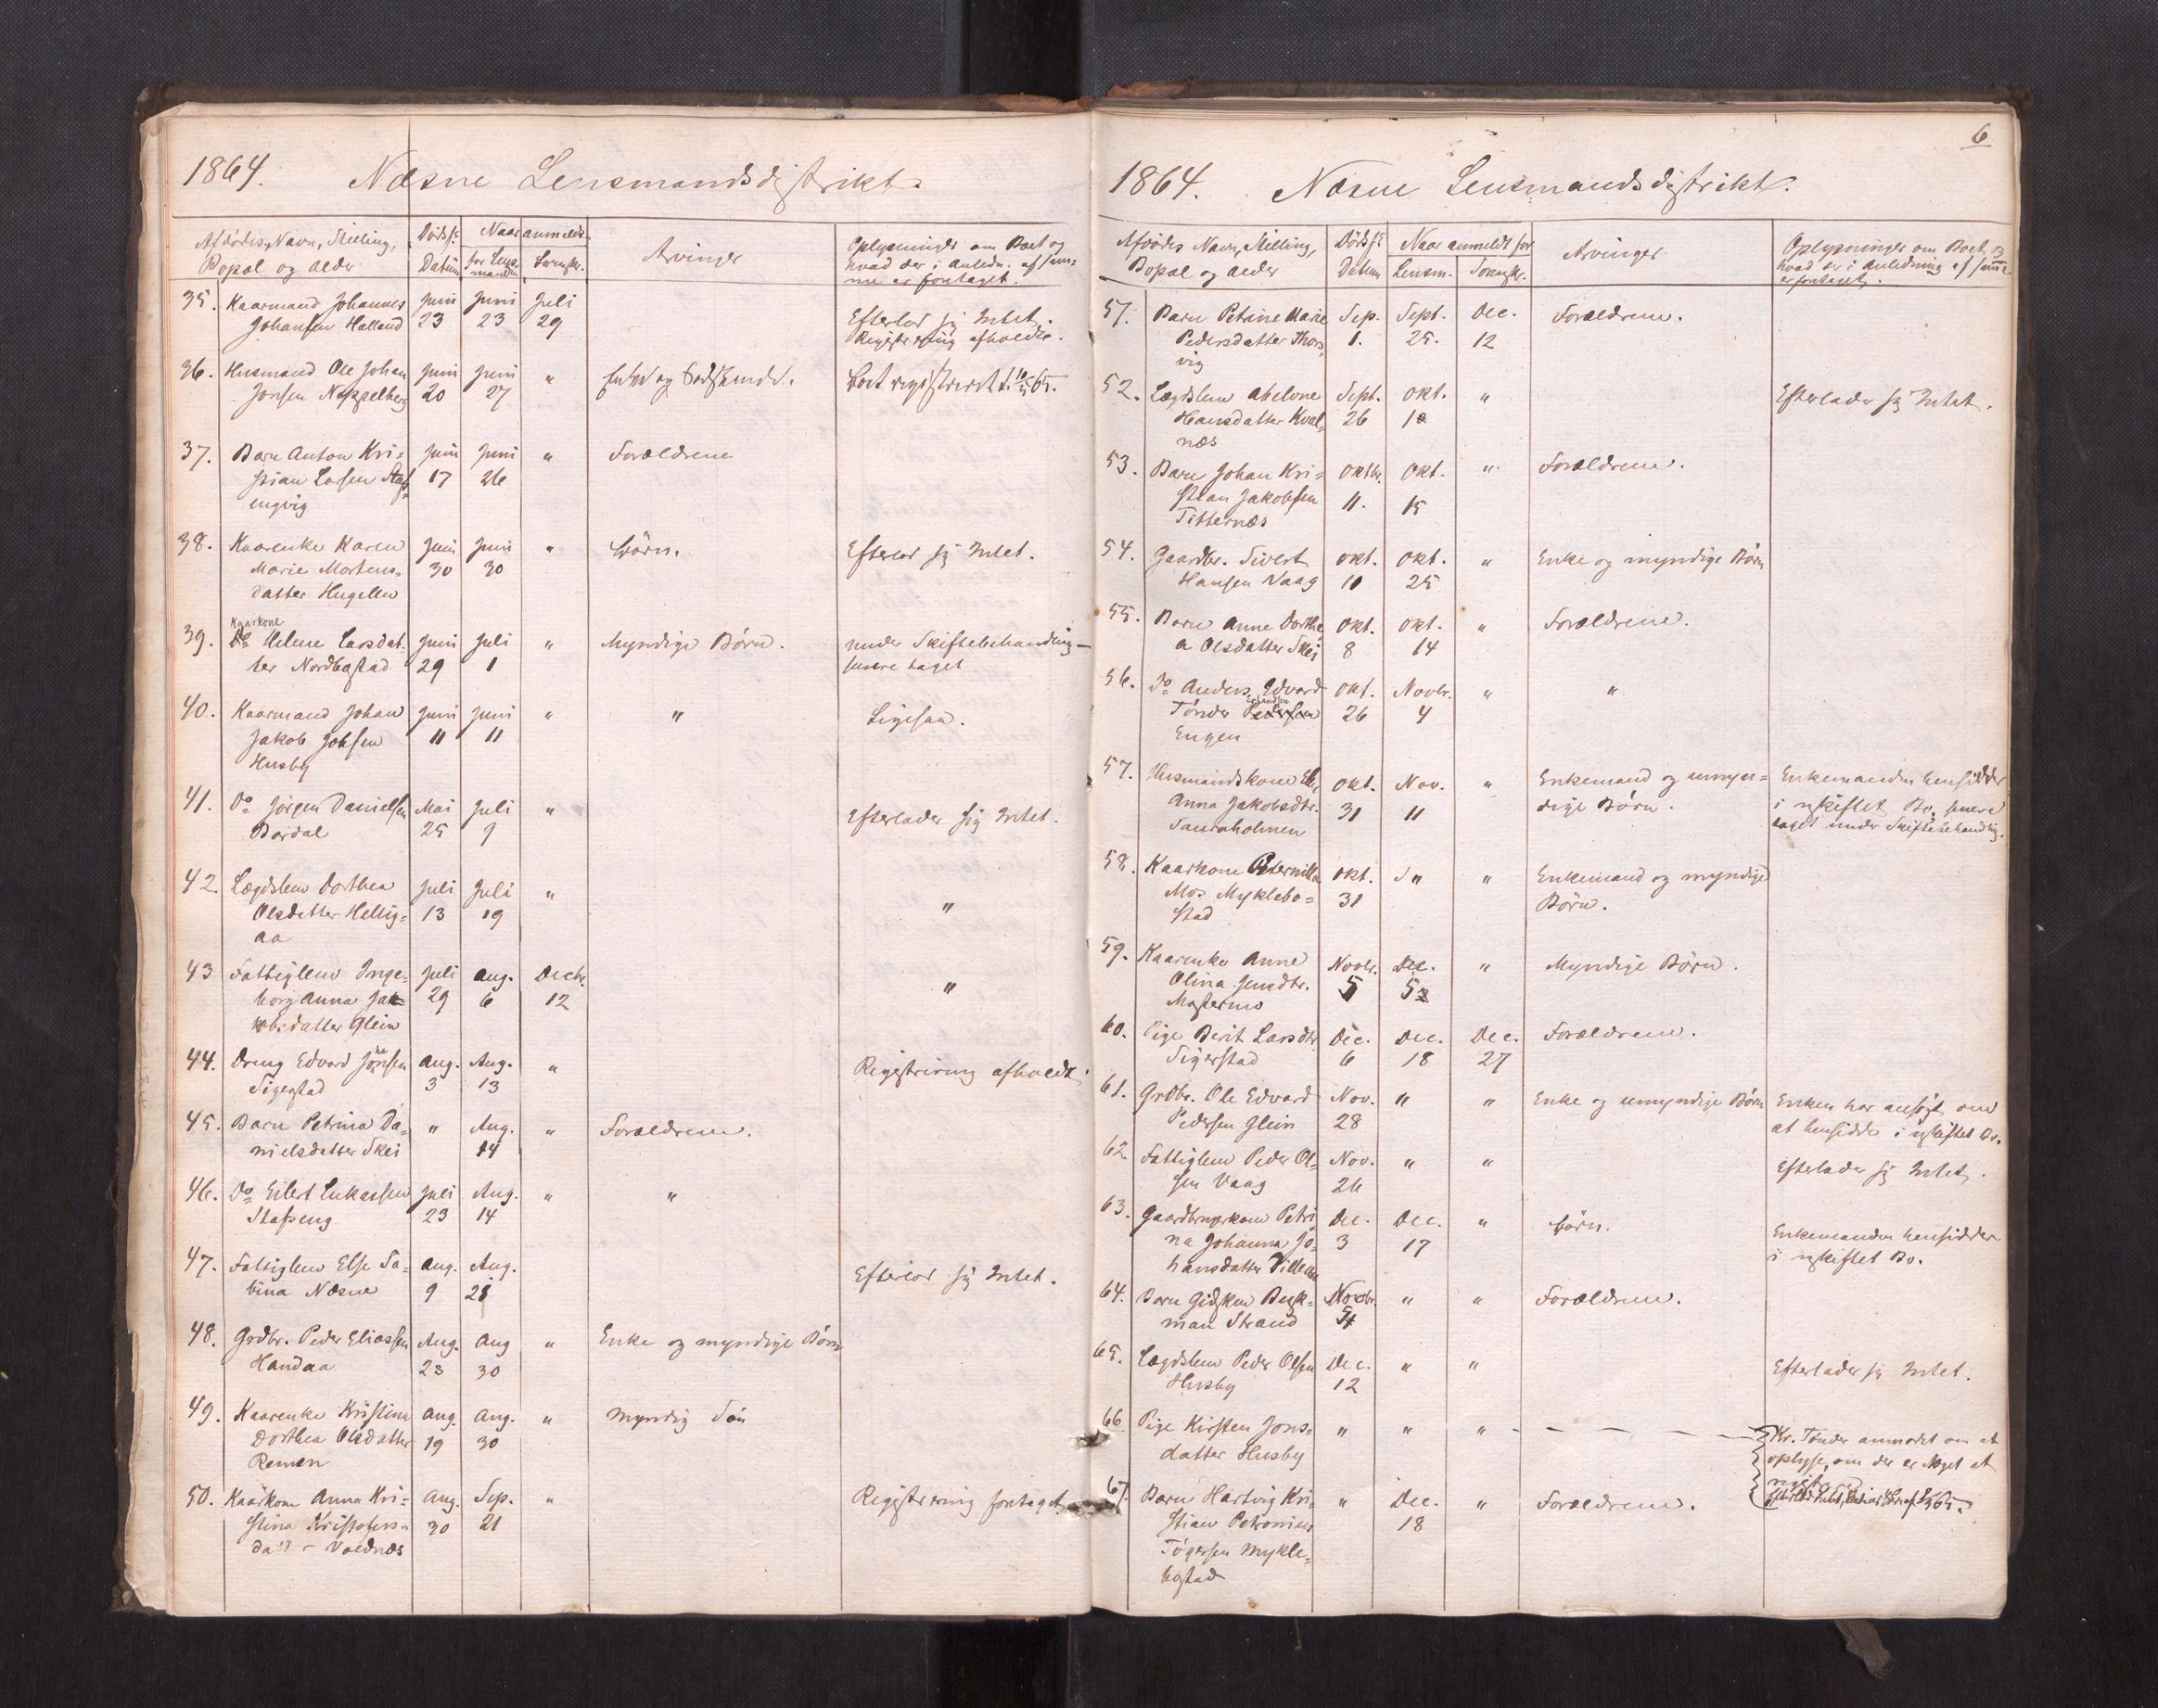 1864. Næsne Lensmandsdistrikt.
Afdødes Navn, Stilling, Bopæl og Alder
Dødsf: Datum
Naar anmeldt
for Lensmanden
Sorenskr.
Arvinger
Oplysninger om Boet og
hvad der i Anledn. af sam-
me er foretaget.
35. Kaarmand Johannes Juni Juni Juli
Johansen Halland 23 23 29 Efterlod sig Intet.
Registrering afholdt.
36. Husmand Ole Johan Juni Juni " Enke og Boet registreret
Jonsen 20 27
37. Barn Anton Kri= Juni Juni " Forældrene
stian Larsen 17 26
engvig
38. Kaarenke Karen Juni Juni " Børn. Efterlod sig Intet.
Marie Mortens= 30 30
datter Hugelen
Kaarkone
39. Do Helene Larsdat- Juni Juli " Myndige Børn. under Skiftebehandling
ter Nordbostad 29 1 taget
40. Kaarmand Johan Juni Juni " " Ligesaa.
Jakob Johsen 11 11
Husby
41. Do Jørgen Danielsen Mai Juli " Efterlader sig Intet.
Bardal 25 9
42. Lægdslem Dorthea Juli Juli "
Olsdatter Hellig= 13 19 "
aa
43 Fattiglem Inge= Juli Aug. Decbr.
borg Anna Jak= 29 6 12 "
obsdatter Glein
44. Dreng Edvard Aug. Aug. " Registrering afholdt.
Sigerstad 3 13
45. Barn Petrina Da= " Aug. " Forældrene.
nielsdatter Skei 14
46. Do Eilert Lukassen Juli Aug. " "
Stafseng 23 14
47. Fattiglem Else Sa= Aug. Aug. Efterlod sig Intet.
bina Næsne 9 28
48. Grdbr. Peder Eliassen Aug. Aug " Enke og myndige Børn
Handaa 23 30
49. Kaarenke Kristina Aug. Aug. " Myndig Søn
Dorthea Olsdatter 19 30
Remen
50. Kaarkone Anna Kri= Aug. Sep. " Registrering foretaget
stina Kristofers= 30 21
datt
6
1864. Næsne Lensmandsdistrikt.
Afdødes Navn, Stilling,
Bopæl og Alder
Dødsf:
Datum
Naar anmeldt for
Lensm. Sorenskr.
Arvinger
Oplysninger om Boet og
hvad der i Anledning af samme
er foretaget.
51. Barn Petrine Marie Sep. Sept. Dec. Forældrene.
Pedersdatter Thors= 1. 25. 12
vig
52. Lægdslem Abelone Sept. Okt. " Efterlader sig Intet.
Hansdatter Kval= 26
næs
53. Barn Johan Kri= Oktbr. Okt. " Forældrene.
stian Jakobsen 11. 15
Titternæs
54. Gaardbr. Sivert Okt. Okt. " Enke og myndige Børn
Hansen Vaag 10 25
55. Barn Anne Dorthe Okt. Okt. " Forældrene.
a Olsdatter Skei 8 14
56. Do Anders Edvard Okt. Novbr. " "
Tønder Pedersen 26 4
Engen
57. Husmandskone Okt. Nov. " Enkemand og umyn= Enkemanden hensidder
Anna Jakobsdtr. 31 11 dige Børn. i uskiftet Bo, senere
Sauraholmen taget under Skiftebehandlig.
58. Kaarkone Pernille Okt. " " Enkemand og myndige
Mos Myklebo= 31 Børn.
stad
59. Kaarenke Anne Novbr. Dec. " Myndige Børn.
Olina Jensdtr. 5
60. Pige Berit Larsdtr Dec. Dec. Dec. Forældrene.
Sigerstad 6 18 27
61. Grdbr. Ole Edvard Nov. " " Enke og umyndige Børn Enken har ansøgt om
Pedersen Glein 28 at hensidde i uskiftet Bo.
62 Fattiglem Peder Ol= Nov. " " Efterlader sig Intet.
sen Vaag 26
63. Gaardbrugerkone Petri= Dec. Dec. " Børn. Enkemanden hensidder
na Johanna Jo= 3 17 i uskiftet Bo.
hansdatter
64. Barn Gidsken Berk= Novbr. " " Forældrene.
man Strand
65. Lægdslem Peder Olsen Dec. " " Efterlader sig Intet.
Husby 12
66 Pige Kirsten Jons= " " " Hr. Tønder anmodet om at
datter Husby oplyse, om der er Noget at
67. Barn Hartvig Kri= " Dec. " Forældrene.
stian Petronius 18
Tøgersen Mykle=
bostad